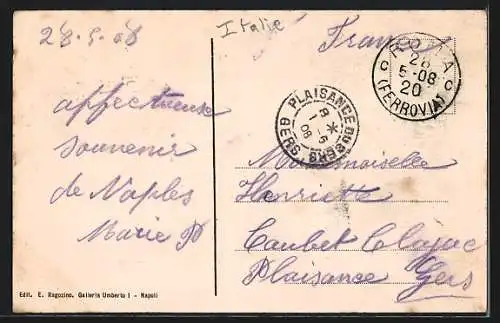 28-5-08
Italie
France
ROMA
28
5-08
20
C C
(FERROVIA)
PLAISANCE DU GERS
1 -6
08
GERS
affectueux
souvenir
de Naples
Marie P
Mademoiselle
Henriette
Caubet
Plaisance Gers
Edit. E. Ragozino. Galleria Umberto I - Napoli